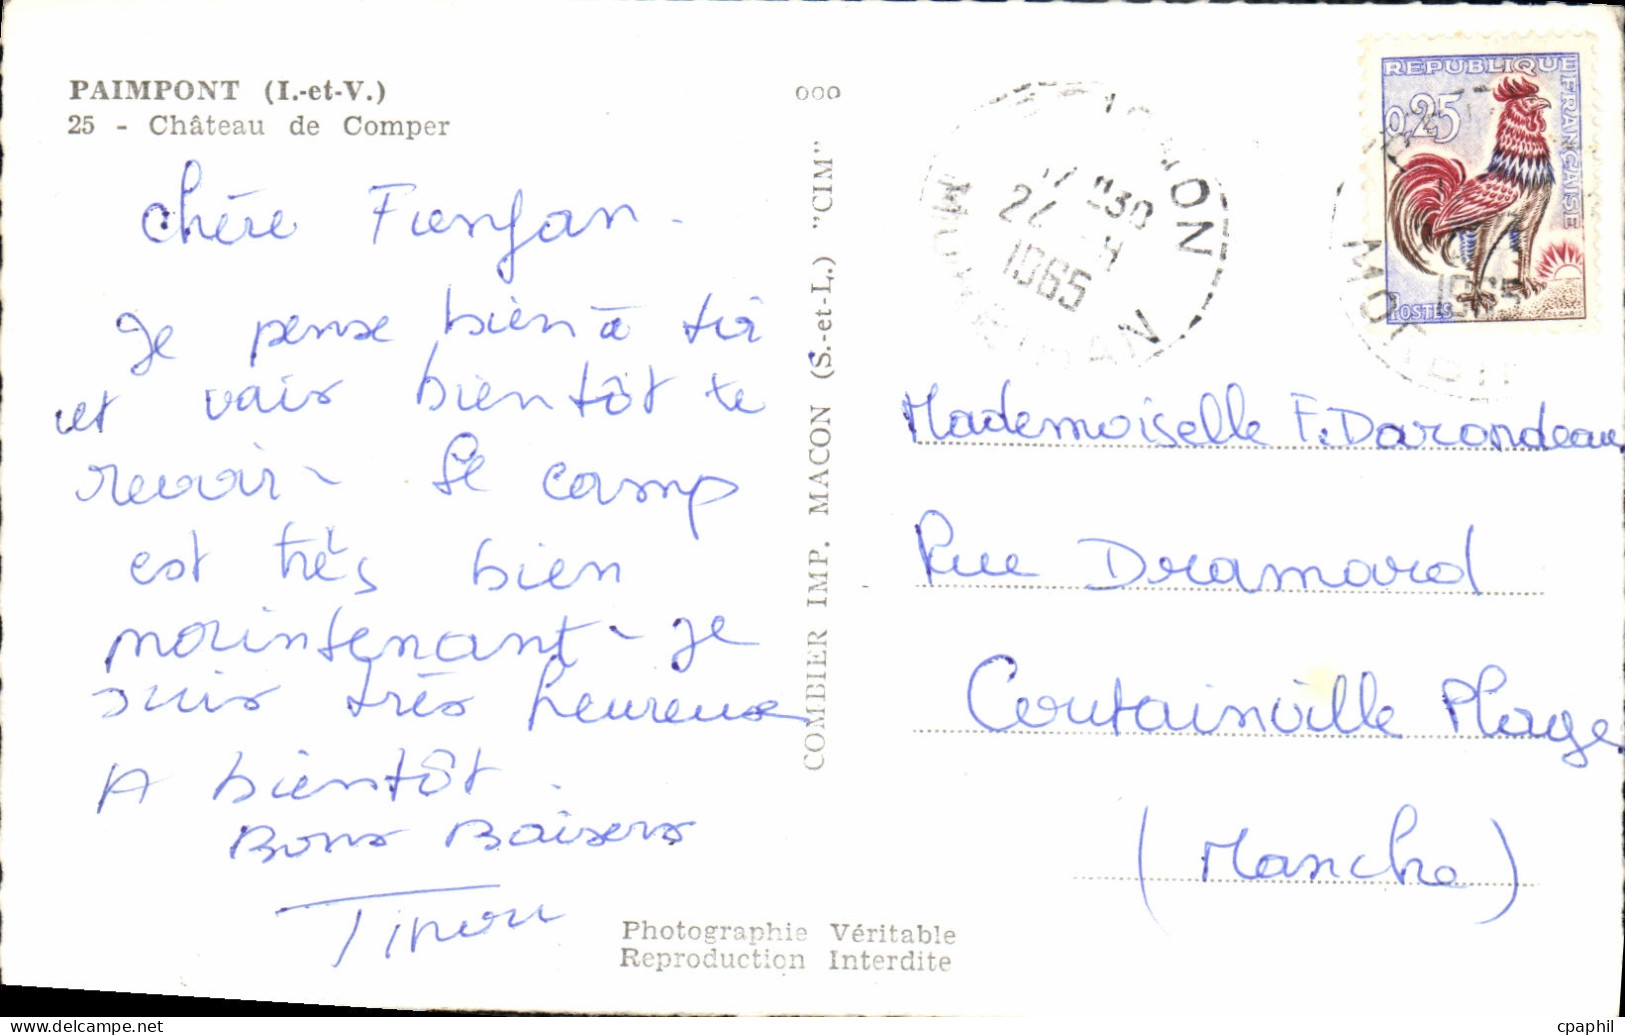 PAIMPONT (I.-et-V.)
25 - Château de Comper
Chère Fienfan -
Je pense bien à toi
et vais bientôt te
revoir - Le camp
est très bien
maintenant - Je
suis très heureuse
A bientôt.
Bons Baisers
COMBIER IMP. MACON (S.-et-L.) "CIM"
Photographie Véritable
Reproduction Interdite
1965
MORBIHAN
REPUBLIQUE FRANÇAISE
0,25
POSTES
1965
Mademoiselle F. Darondeau
Rue Dramard
Coutainville Plage
(Manche)
cpaphil